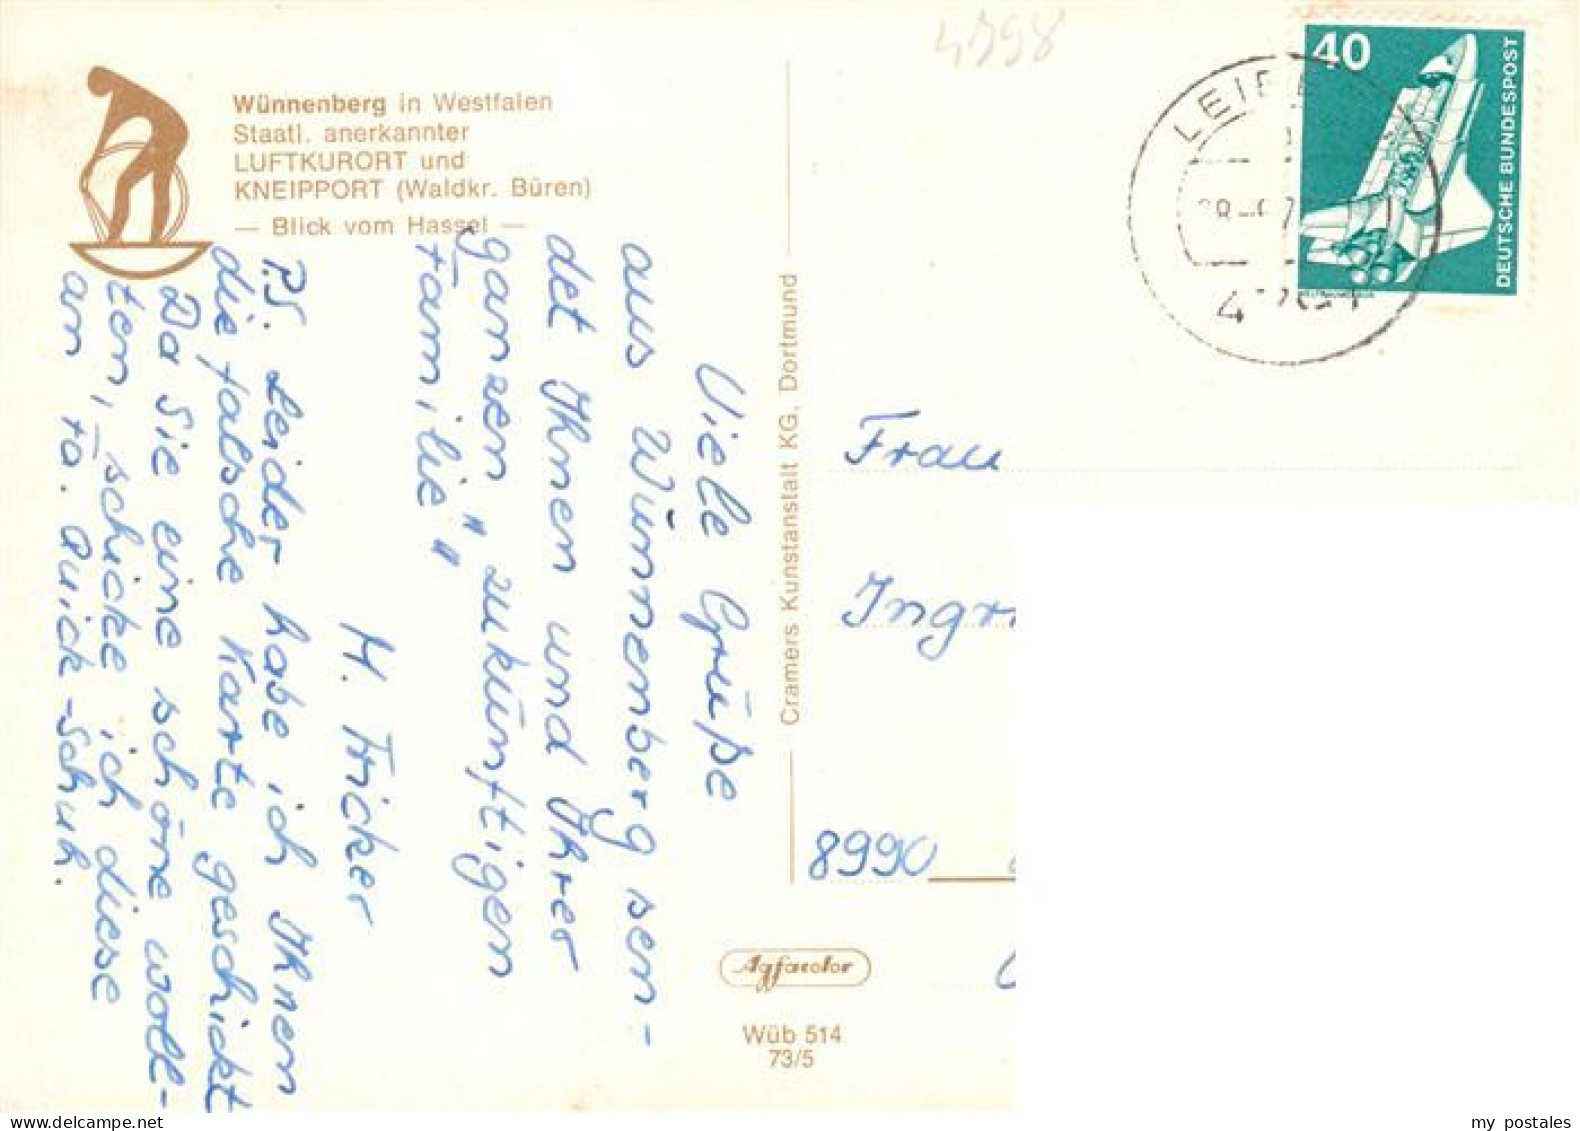 4798
Wünnenberg in Westfalen
Staatl. anerkannter
LUFTKURORT und
KNEIPPORT (Waldkr. Büren)
— Blick vom Hassel —
Viele Grüße
aus Wünnenberg sen-
det Ihnen und Ihrer
ganzen "zukünftigen
Familie"
H. Fricker
P.S. Leider habe ich Ihnen
die falsche Karte geschickt
Da Sie eine schöne woll-
ten, schicke ich diese
an Fa. Quick-Schuh.
Cramers Kunstanstalt KG, Dortmund
40
DEUTSCHE BUNDESPOST
Frau
8990
Agfacolor
Wüb 514
73/5
my postales